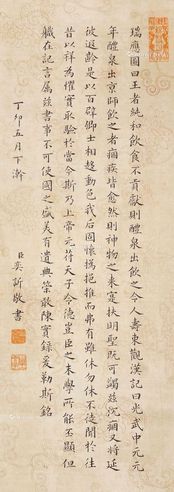 瑞應圖曰王者純和飲食不貢獻則醴泉出飲之令人壽東觀漢記曰光武中元元
年醴泉出京師飲之者痼疾皆愈然則神物之來寔扶明聖既可蠲茲沉痼又將延
彼遐齡是以百辟卿士相趨動色我后固懷撝挹推而弗有雖休勿休不徒聞於往
昔以祥為懼實取驗於當今斯乃上帝元符天子令德豈臣之末學所能丕顯但
職在記言屬茲書事不可使國之盛美有遺典策敢陳實錄爰勒斯銘
丁卯五月下澣
臣奕訢敬書